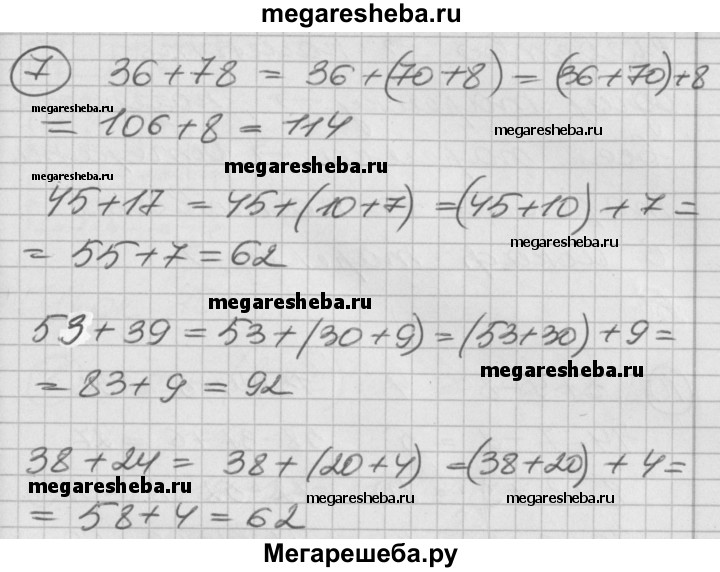 megaresheba.ru
7 36+78 = 36+(70+8) = (36+70)+8
megaresheba.ru
= 106+8 = 114 megaresheba.ru
megaresheba.ru megaresheba.ru
45+17 = 45+(10+7) =(45+10)+7=
megaresheba.ru
= 55+7=62
megaresheba.ru
53+39 = 53+(30+9)=(53+30)+9=
megaresheba.ru
= 83+9 = 92
38+24 = 38+(20+4) =(38+20)+4=
megaresheba.ru megaresheba.ru megaresheba.ru
= 58+4 = 62
Мегарешеба.ру